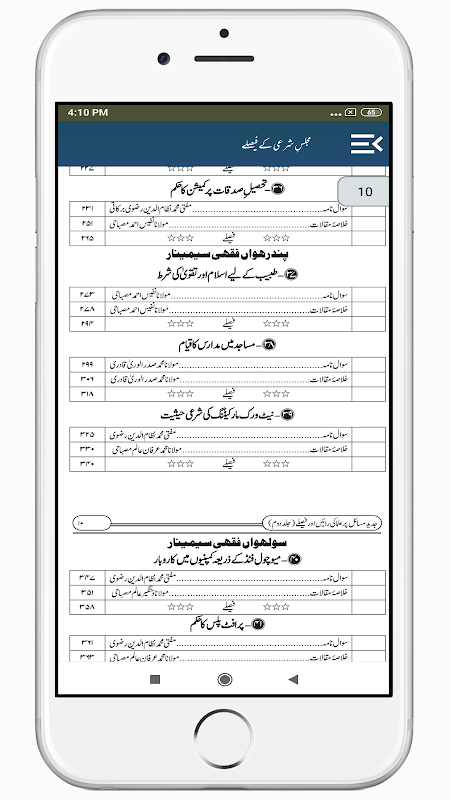 4:10 PM
65
مجلس شرعی کے فیصلے
10
۲۲۷ ☆☆☆ فیصلے ☆☆☆
۳۶ - تحصیل صدقات پر کمیشن کا حکم
سوال نامہ مفتی محمد نظام الدین رضوی برکاتی ۲۳۱
خلاصۂ مقالات مولانا نفیس احمد مصباحی ۲۵۱
☆☆☆ فیصلے ☆☆☆ ۲۶۵
پندرھواں فقھی سیمینار
۳۷ - طبیب کے لیے اسلام اور تقویٰ کی شرط
سوال نامہ مولانا نفیس احمد مصباحی ۲۷۳
خلاصۂ مقالات مولانا نفیس احمد مصباحی ۲۷۸
☆☆☆ فیصلے ☆☆☆ ۲۹۴
۳۸ - مساجد میں مدارس کا قیام
سوال نامہ مولانا محمد صدر الوریٰ قادری ۲۹۹
خلاصۂ مقالات مولانا محمد صدر الوریٰ قادری ۳۰۶
☆☆☆ فیصلے ☆☆☆ ۳۱۸
۳۹ - نیٹ ورک مارکیٹنگ کی شرعی حیثیت
سوال نامہ مفتی محمد نظام الدین رضوی ۳۲۵
خلاصۂ مقالات مولانا محمد عرفان عالم مصباحی ۳۳۰
☆☆☆ فیصلے ☆☆☆ ۳۴۰
جدید مسائل پر علما کی رائیں اور فیصلے (جلد دوم) ۱۰
سولھواں فقھی سیمینار
۴۰ - میوچول فنڈ کے ذریعہ کمپنیوں میں کاروبار
سوال نامہ مفتی محمد نظام الدین رضوی ۳۴۷
خلاصۂ مقالات مولانا دستگیر عالم مصباحی ۳۵۱
☆☆☆ فیصلے ☆☆☆ ۳۵۸
۴۱ - پرافٹ پلس کا حکم
سوال نامہ مفتی محمد نظام الدین رضوی ۳۶۱
خلاصۂ مقالات مولانا محمد عرفان عالم مصباحی ۳۶۳